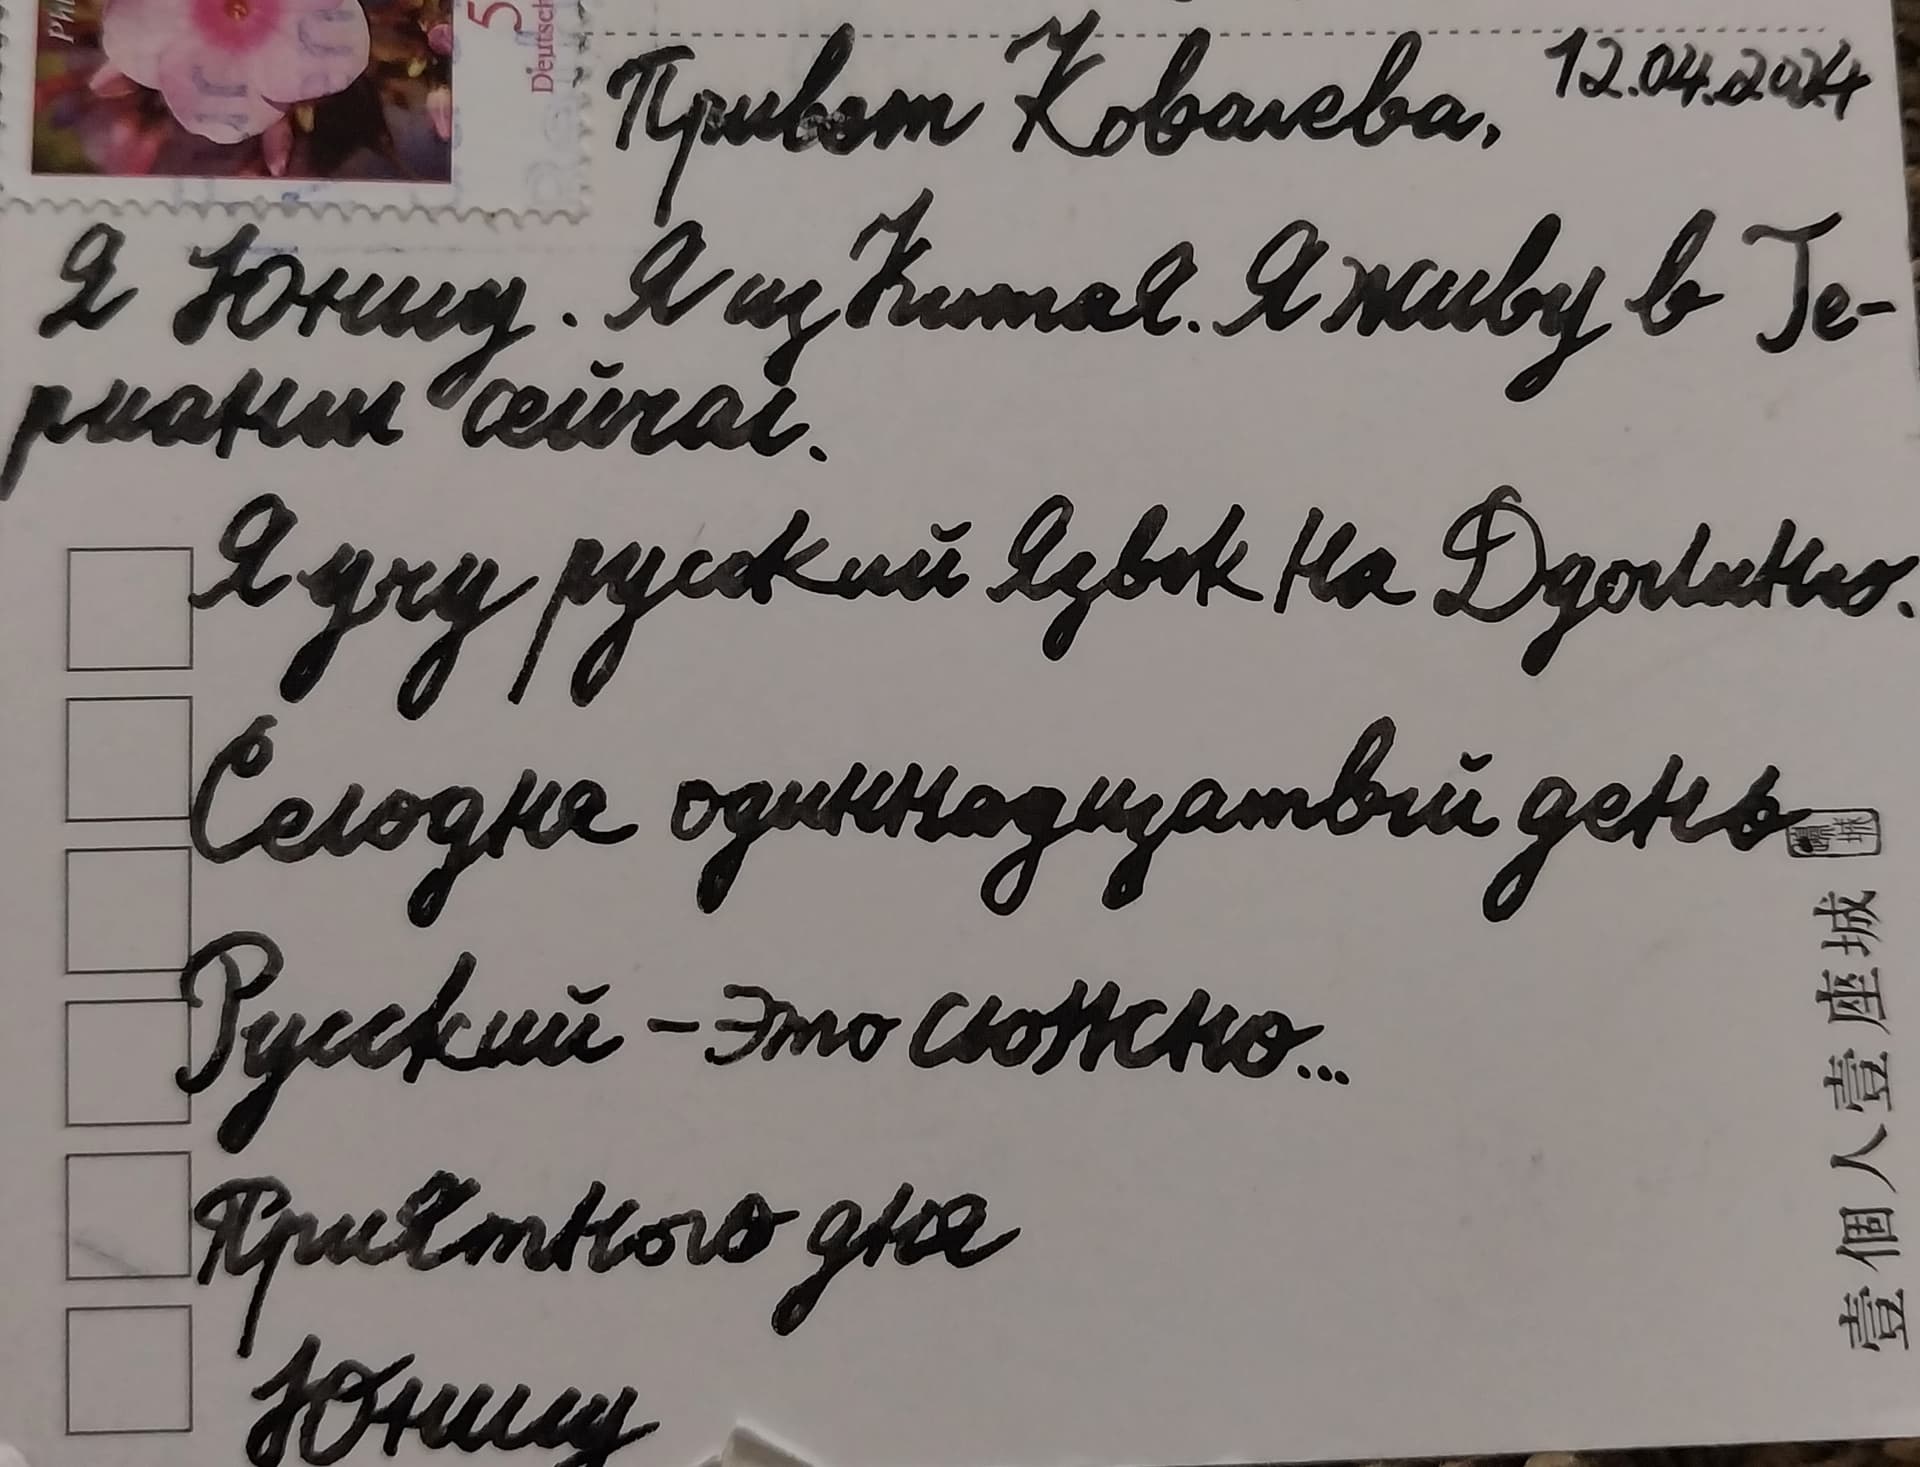 Phl
5
Deutsch
12.04.2024
Привет Ковалева,
Я Юниу. Я из Китая. Я живу в Ге-
рмании сейчас.
Я учу русский язык на Дуолинго.
Сегодня одиннадцатый день
Русский - это сложно...
Приятного дня
Юниу
壹個人壹座城